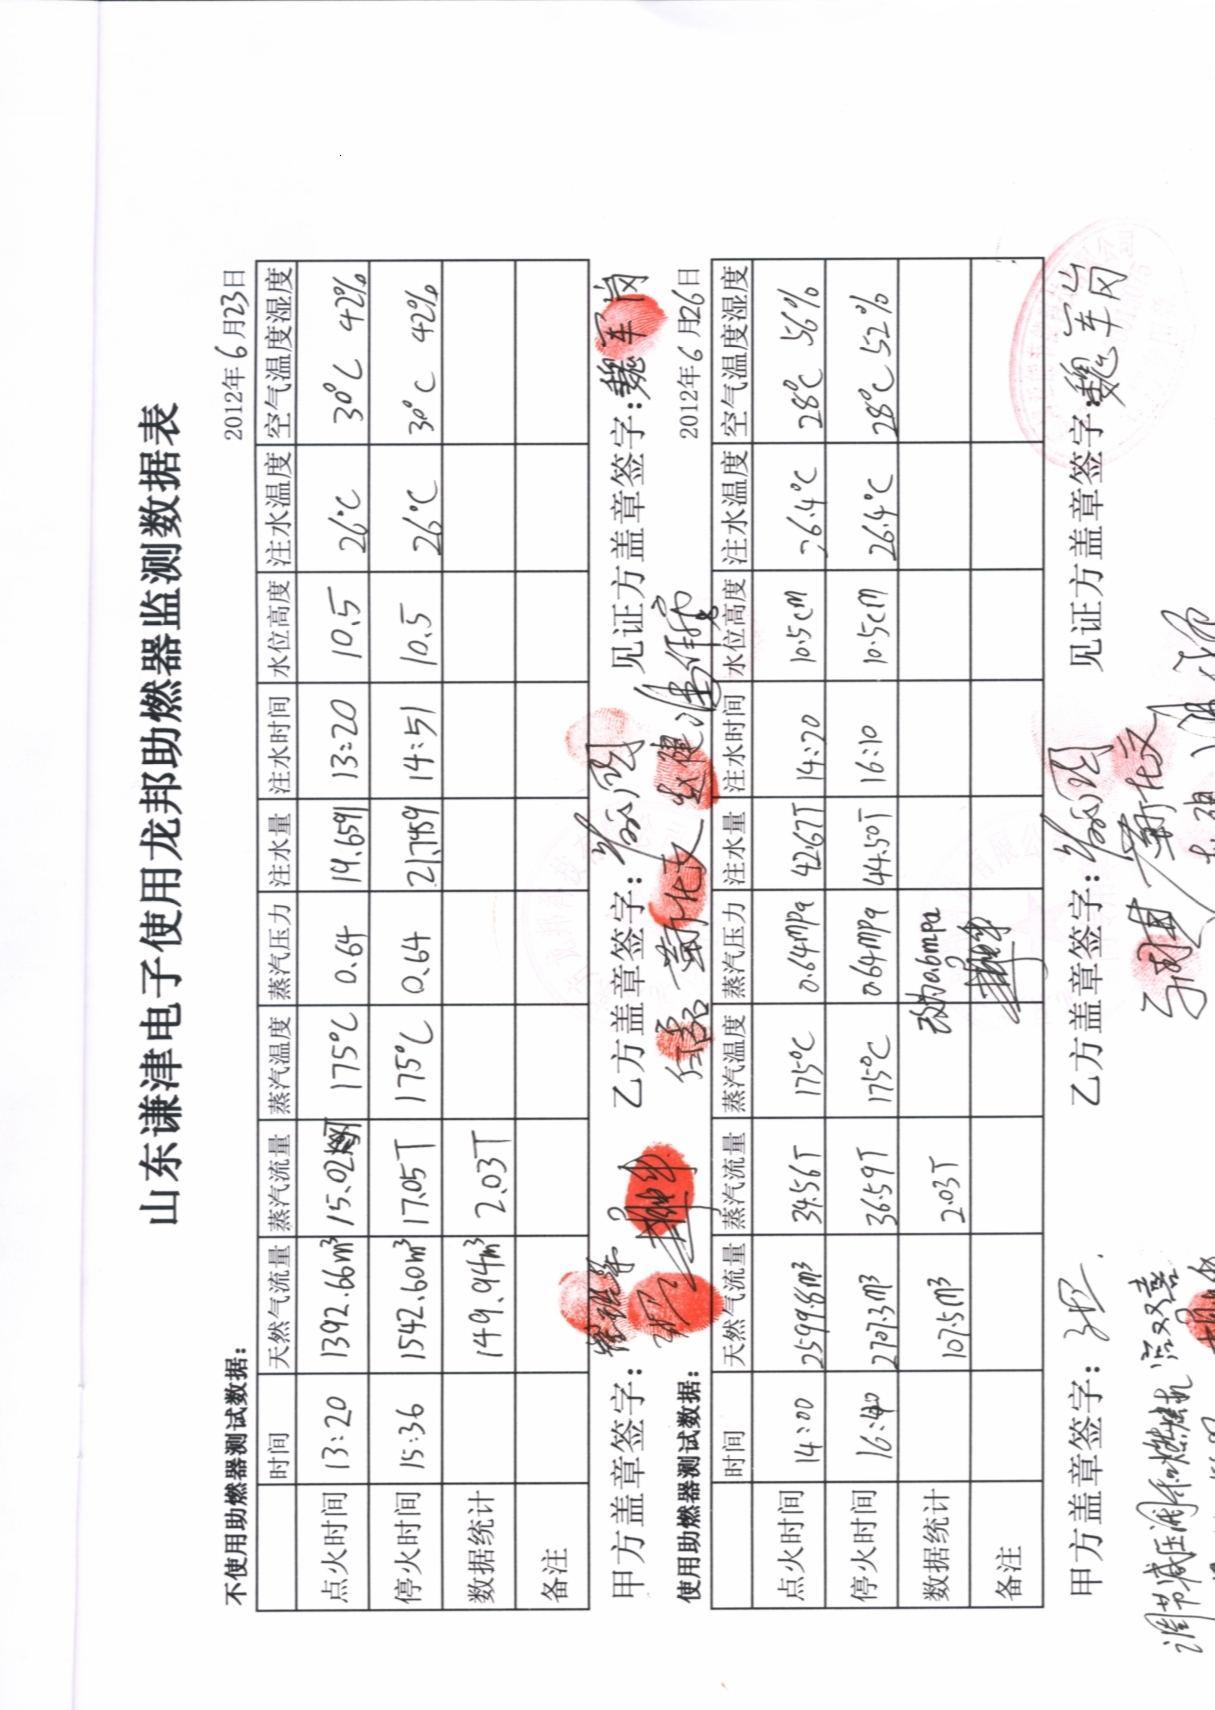 山东谦津电子使用龙邦助燃器监测数据表
不使用助燃器测试数据： 2012年6月23日
时间 天然气流量 蒸汽流量 蒸汽温度 蒸汽压力 注水量 注水时间 水位高度 注水温度 空气温度湿度
点火时间 13:20 1392.66m³ 15.02 175℃ 0.64 19.6591 13:20 10.5 26℃ 30℃ 42%
停火时间 15:36 1542.60m³ 17.05T 175℃ 0.64 21.7459 14:51 10.5 26℃ 30℃ 42%
数据统计 149.94m³ 2.03T
备注
甲方盖章签字： 乙方盖章签字： 见证方盖章签字：魏军岗
使用助燃器测试数据： 2012年6月26日
时间 天然气流量 蒸汽流量 蒸汽温度 蒸汽压力 注水量 注水时间 水位高度 注水温度 空气温度湿度
点火时间 14:00 2599.8m³ 34.56T 175℃ 0.64mpa 42.67T 14:20 10.5cm 26.4℃ 28℃ 56%
停火时间 16:40 2707.3m³ 36.59T 175℃ 0.64mpa 44.50T 16:10 10.5cm 26.4℃ 28℃ 52%
数据统计 107.5m³ 2.03T 改为0.6mpa
备注
甲方盖章签字： 乙方盖章签字： 见证方盖章签字：魏军岗
调节减压阀和燃烧机